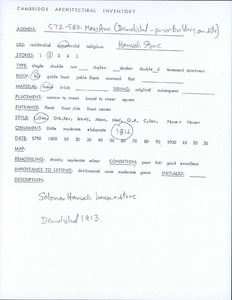 CAMBRIDGE ARCHITECTURAL INVENTORY
ADDRESS: 572-582 Mass Ave (Demolished - prior building on site)
USE: residential commercial religious Hancock Store
STORIES: 1 2 3 4 5
TYPE: single double row duplex decker double d tenement apartment
ROOF: hip gable front gable flank mansard flat
MATERIAL: frame brick SIDING: original subsequent
PLACEMENT: narrow to street broad to street square
ENTRANCE: flank front side front center
STYLE:
ORNAMENT: little moderate elaborate 1816
DATE: 1790 10 20 30 40 50 60 70 80 90 1900 10 20 30
MAP:
REMODELING: drastic moderate minor CONDITION: poor fair good excellent
IMPORTANCE TO SETTING: detrimental none moderate great INITIALED:
DESCRIPTION:
Solomon Hancock house & store
Demolished 1913.